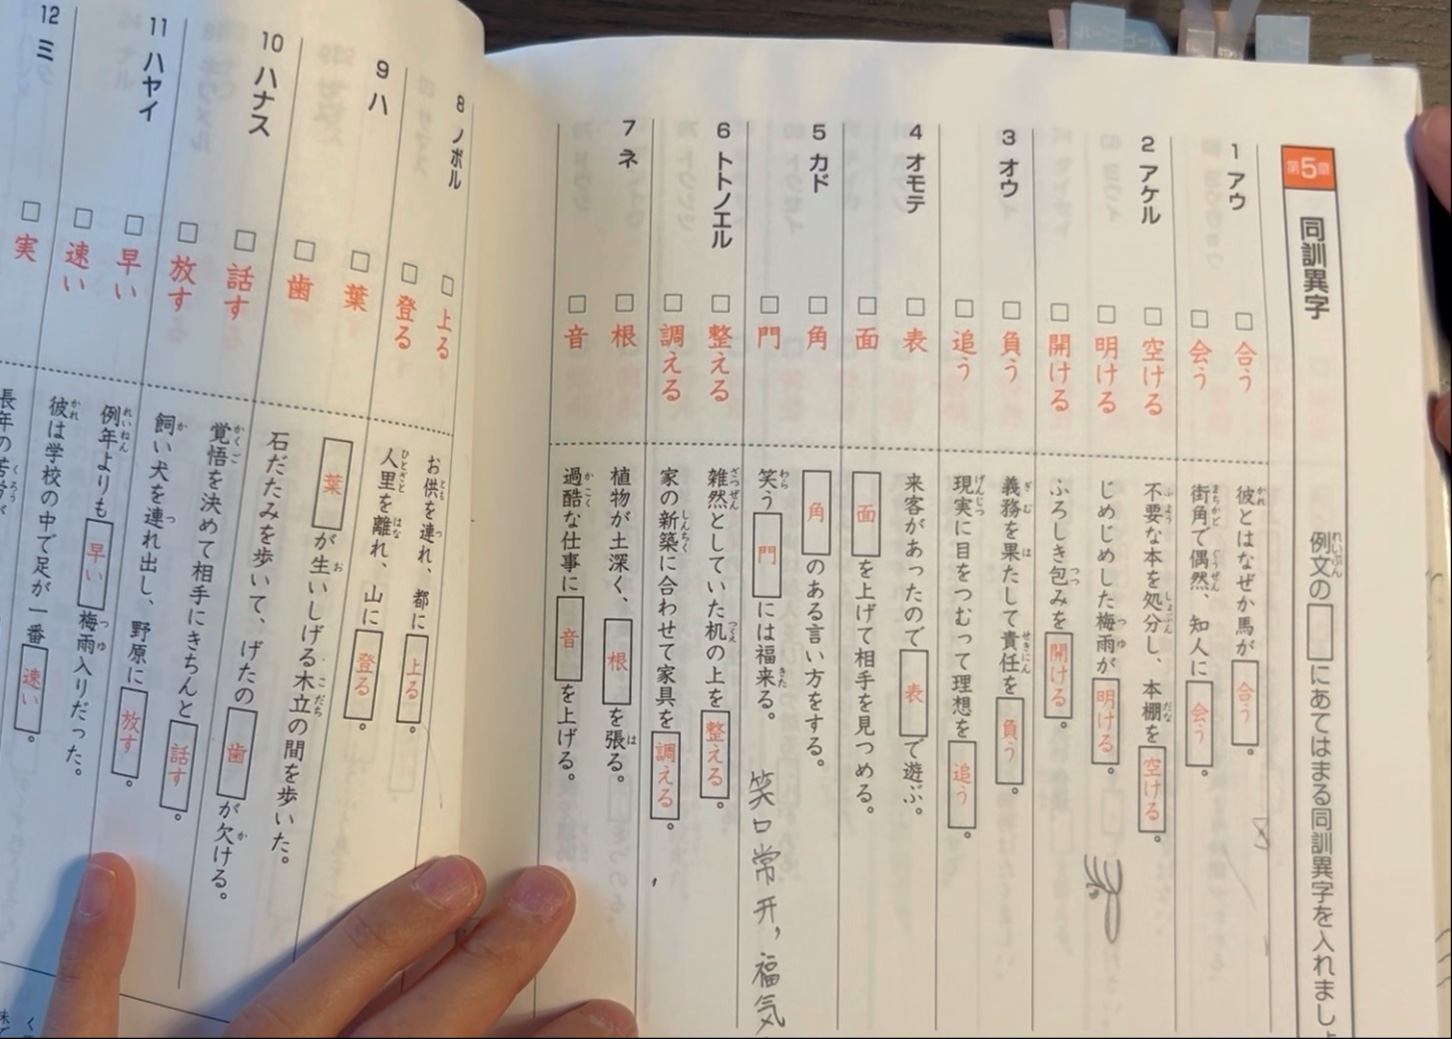 第5章 同訓異字
例文の□にあてはまる同訓異字を入れまし
1 アウ
□ 合う 彼とはなぜか馬が合う。
□ 会う 街角で偶然、知人に会う。
2 アケル
□ 空ける 不要な本を処分し、本棚を空ける。
□ 明ける じめじめした梅雨が明ける。
□ 開ける ふろしき包みを開ける。
3 オウ
□ 負う 義務を果たして責任を負う。
□ 追う 現実に目をつむって理想を追う。
4 オモテ
□ 表 来客があったので表で遊ぶ。
□ 面 面を上げて相手を見つめる。
5 カド
□ 角 角のある言い方をする。
□ 門 笑う門には福来る。
笑口常开，福気
6 トトノエル
□ 整える 雑然としていた机の上を整える。
□ 調える 家の新築に合わせて家具を調える。
7 ネ
□ 根 植物が土深く、根を張る。
□ 音 過酷な仕事に音を上げる。
8 ノボル
□ 上る お供を連れ、都に上る。
□ 登る 人里を離れ、山に登る。
9 ハ
□ 葉 葉が生いしげる木立の間を歩いた。
□ 歯 石だたみを歩いて、げたの歯が欠ける。
10 ハナス
□ 話す 覚悟を決めて相手にきちんと話す。
□ 放す 飼い犬を連れ出し、野原に放す。
11 ハヤイ
□ 早い 例年よりも早い梅雨入りだった。
□ 速い 彼は学校の中で足が一番速い。
12 ミ
□ 実 長年の苦労が